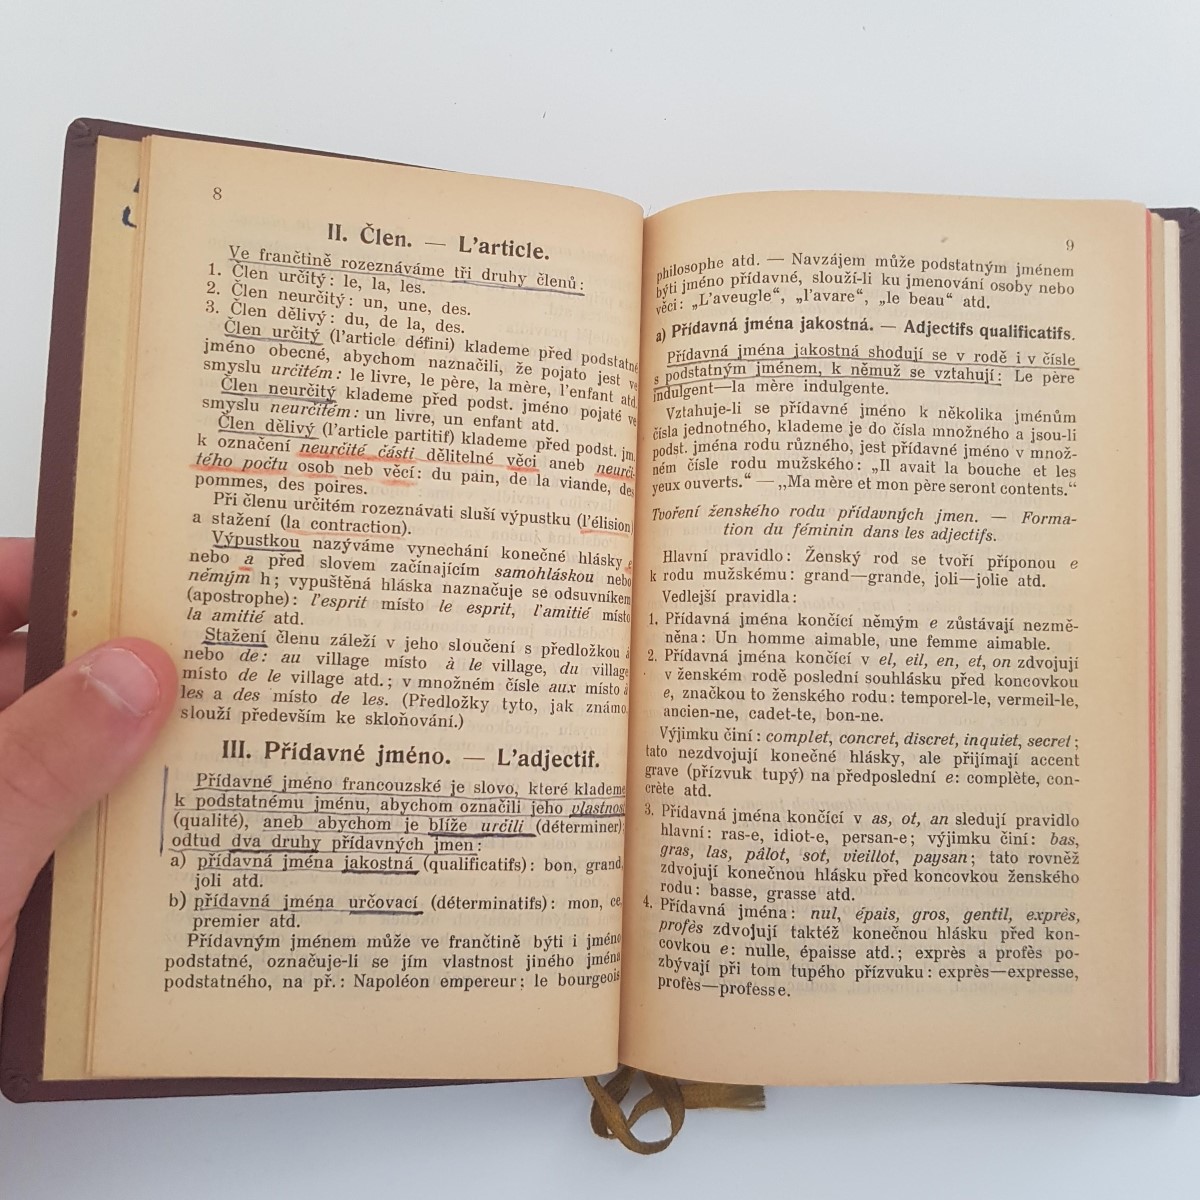 8
II. Člen. — L'article.
Ve frančtině rozeznáváme tři druhy členů:
1. Člen určitý: le, la, les.
2. Člen neurčitý: un, une, des.
3. Člen dělivý: du, de la, des.
Člen určitý (l'article défini) klademe před podstatné
jméno obecné, abychom naznačili, že pojato jest ve
smyslu určitém: le livre, le père, la mère, l'enfant atd.
Člen neurčitý klademe před podst. jméno pojaté ve
smyslu neurčitém: un livre, un enfant atd.
Člen dělivý (l'article partitif) klademe před podst. jm.
k označení neurčité části dělitelné věci aneb neurči-
tého počtu osob neb věcí: du pain, de la viande, des
pommes, des poires.
Při členu určitém rozeznávati sluší výpustku (l'élision)
a stažení (la contraction).
Výpustkou nazýváme vynechání konečné hlásky e
nebo a před slovem začínajícím samohláskou nebo
němým h; vypuštěná hláska naznačuje se odsuvníkem
(apostrophe): l'esprit místo le esprit, l'amitié místo
la amitié atd.
Stažení členu záleží v jeho sloučení s předložkou à
nebo de: au village místo à le village, du village
místo de le village atd.; v množném čísle aux místo à
les a des místo de les. (Předložky tyto, jak známo,
slouží především ke skloňování.)
III. Přídavné jméno. — L'adjectif.
Přídavné jméno francouzské je slovo, které klademe
k podstatnému jménu, abychom označili jeho vlastnost
(qualité), aneb abychom je blíže určili (déterminer);
odtud dva druhy přídavných jmen:
a) přídavná jména jakostná (qualificatifs): bon, grand,
joli atd.
b) přídavná jména určovací (déterminatifs): mon, ce,
premier atd.
Přídavným jménem může ve frančtině býti i jméno
podstatné, označuje-li se jím vlastnost jiného jména
podstatného, na př.: Napoléon empereur; le bourgeois
9
philosophe atd. — Navzájem může podstatným jménem
býti jméno přídavné, slouží-li ku jmenování osoby nebo
věci: „L'aveugle“, „l'avare“, „le beau“ atd.
a) Přídavná jména jakostná. — Adjectifs qualificatifs.
Přídavná jména jakostná shodují se v rodě i v čísle
s podstatným jménem, k němuž se vztahují: Le père
indulgent—la mère indulgente.
Vztahuje-li se přídavné jméno k několika jménům
čísla jednotného, klademe je do čísla množného a jsou-li
podst. jména rodu různého, jest přídavné jméno v množ-
ném čísle rodu mužského: „Il avait la bouche et les
yeux ouverts.“ — „Ma mère et mon père seront contents.“
Tvoření ženského rodu přídavných jmen. — Forma-
tion du féminin dans les adjectifs.
Hlavní pravidlo: Ženský rod se tvoří příponou e
k rodu mužskému: grand—grande, joli—jolie atd.
Vedlejší pravidla:
1. Přídavná jména končící němým e zůstávají nezmě-
něna: Un homme aimable, une femme aimable.
2. Přídavná jména končící v el, eil, en, et, on zdvojují
v ženském rodě poslední souhlásku před koncovkou
e, značkou to ženského rodu: temporel-le, vermeil-le,
ancien-ne, cadet-te, bon-ne.
Výjimku činí: complet, concret, discret, inquiet, secret;
tato nezdvojují konečné hlásky, ale přijímají accent
grave (přízvuk tupý) na předposlední e: complète, con-
crète atd.
3. Přídavná jména končící v as, ot, an sledují pravidlo
hlavní: ras-e, idiot-e, persan-e; výjimku činí: bas,
gras, las, pâlot, sot, vieillot, paysan; tato rovněž
zdvojují konečnou hlásku před koncovkou ženského
rodu: basse, grasse atd.
4. Přídavná jména: nul, épais, gros, gentil, exprès,
profès zdvojují taktéž konečnou hlásku před kon-
covkou e: nulle, épaisse atd.; exprès a profès po-
zbývají při tom tupého přízvuku: exprès—expresse,
profès—professe.